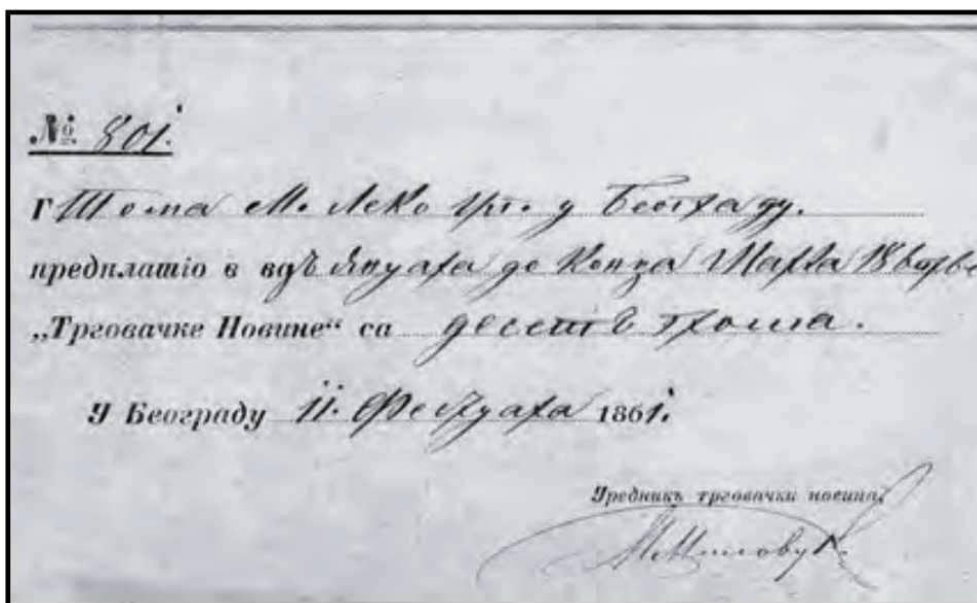 № 801.
Г Тома М. Леко трг. у Београду.
предплатіо є одъ Януара до конца Марта
„Трговачке Новине“ са десетъ гроша.
У Београду 11. Фебруара 1861.
Уредникъ трговачки новина,
М. Миловук.